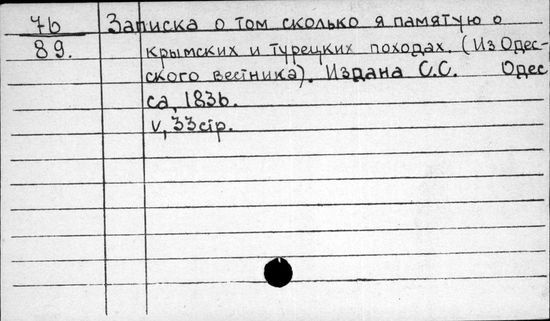 7b Записка о том сколько я памятую о
89. крымских и турецких походах. (Из Одес-
ского вестника). Издана С.С. Одес
са, 1836.
V, 33 стр.